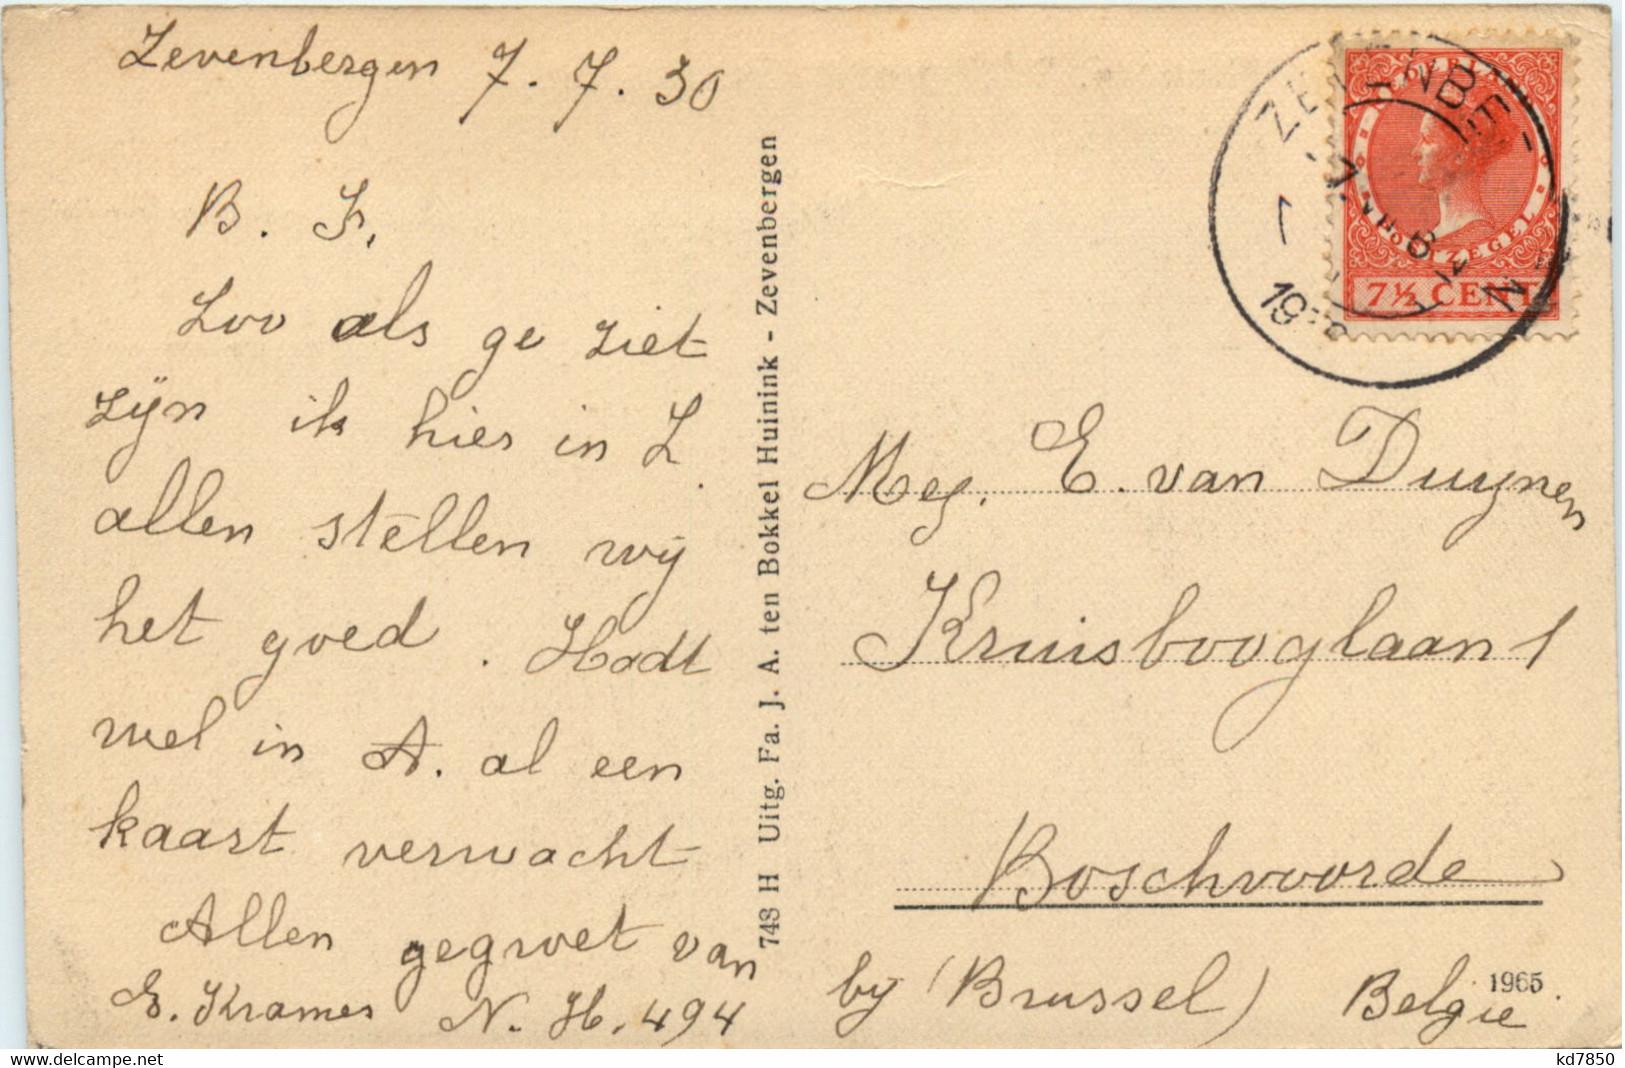 Zevenbergen 7.7.30
B. F.
Zoo als ge ziet
zijn ik hier in Z.
allen stellen wij
het goed. Hadt
wel in A. al een
kaart verwacht
Allen gegroet van
E. Kramer N. H. 494
743 H Uitg. Fa. J. A. ten Bokkel Huinink - Zevenbergen
POSTZEGEL
7½ CENT
Mej. E. van Duynen
Kruisbooglaan 1
Boschvoorde
by (Brussel) Belgie
1965
kd7850
delcampe.net